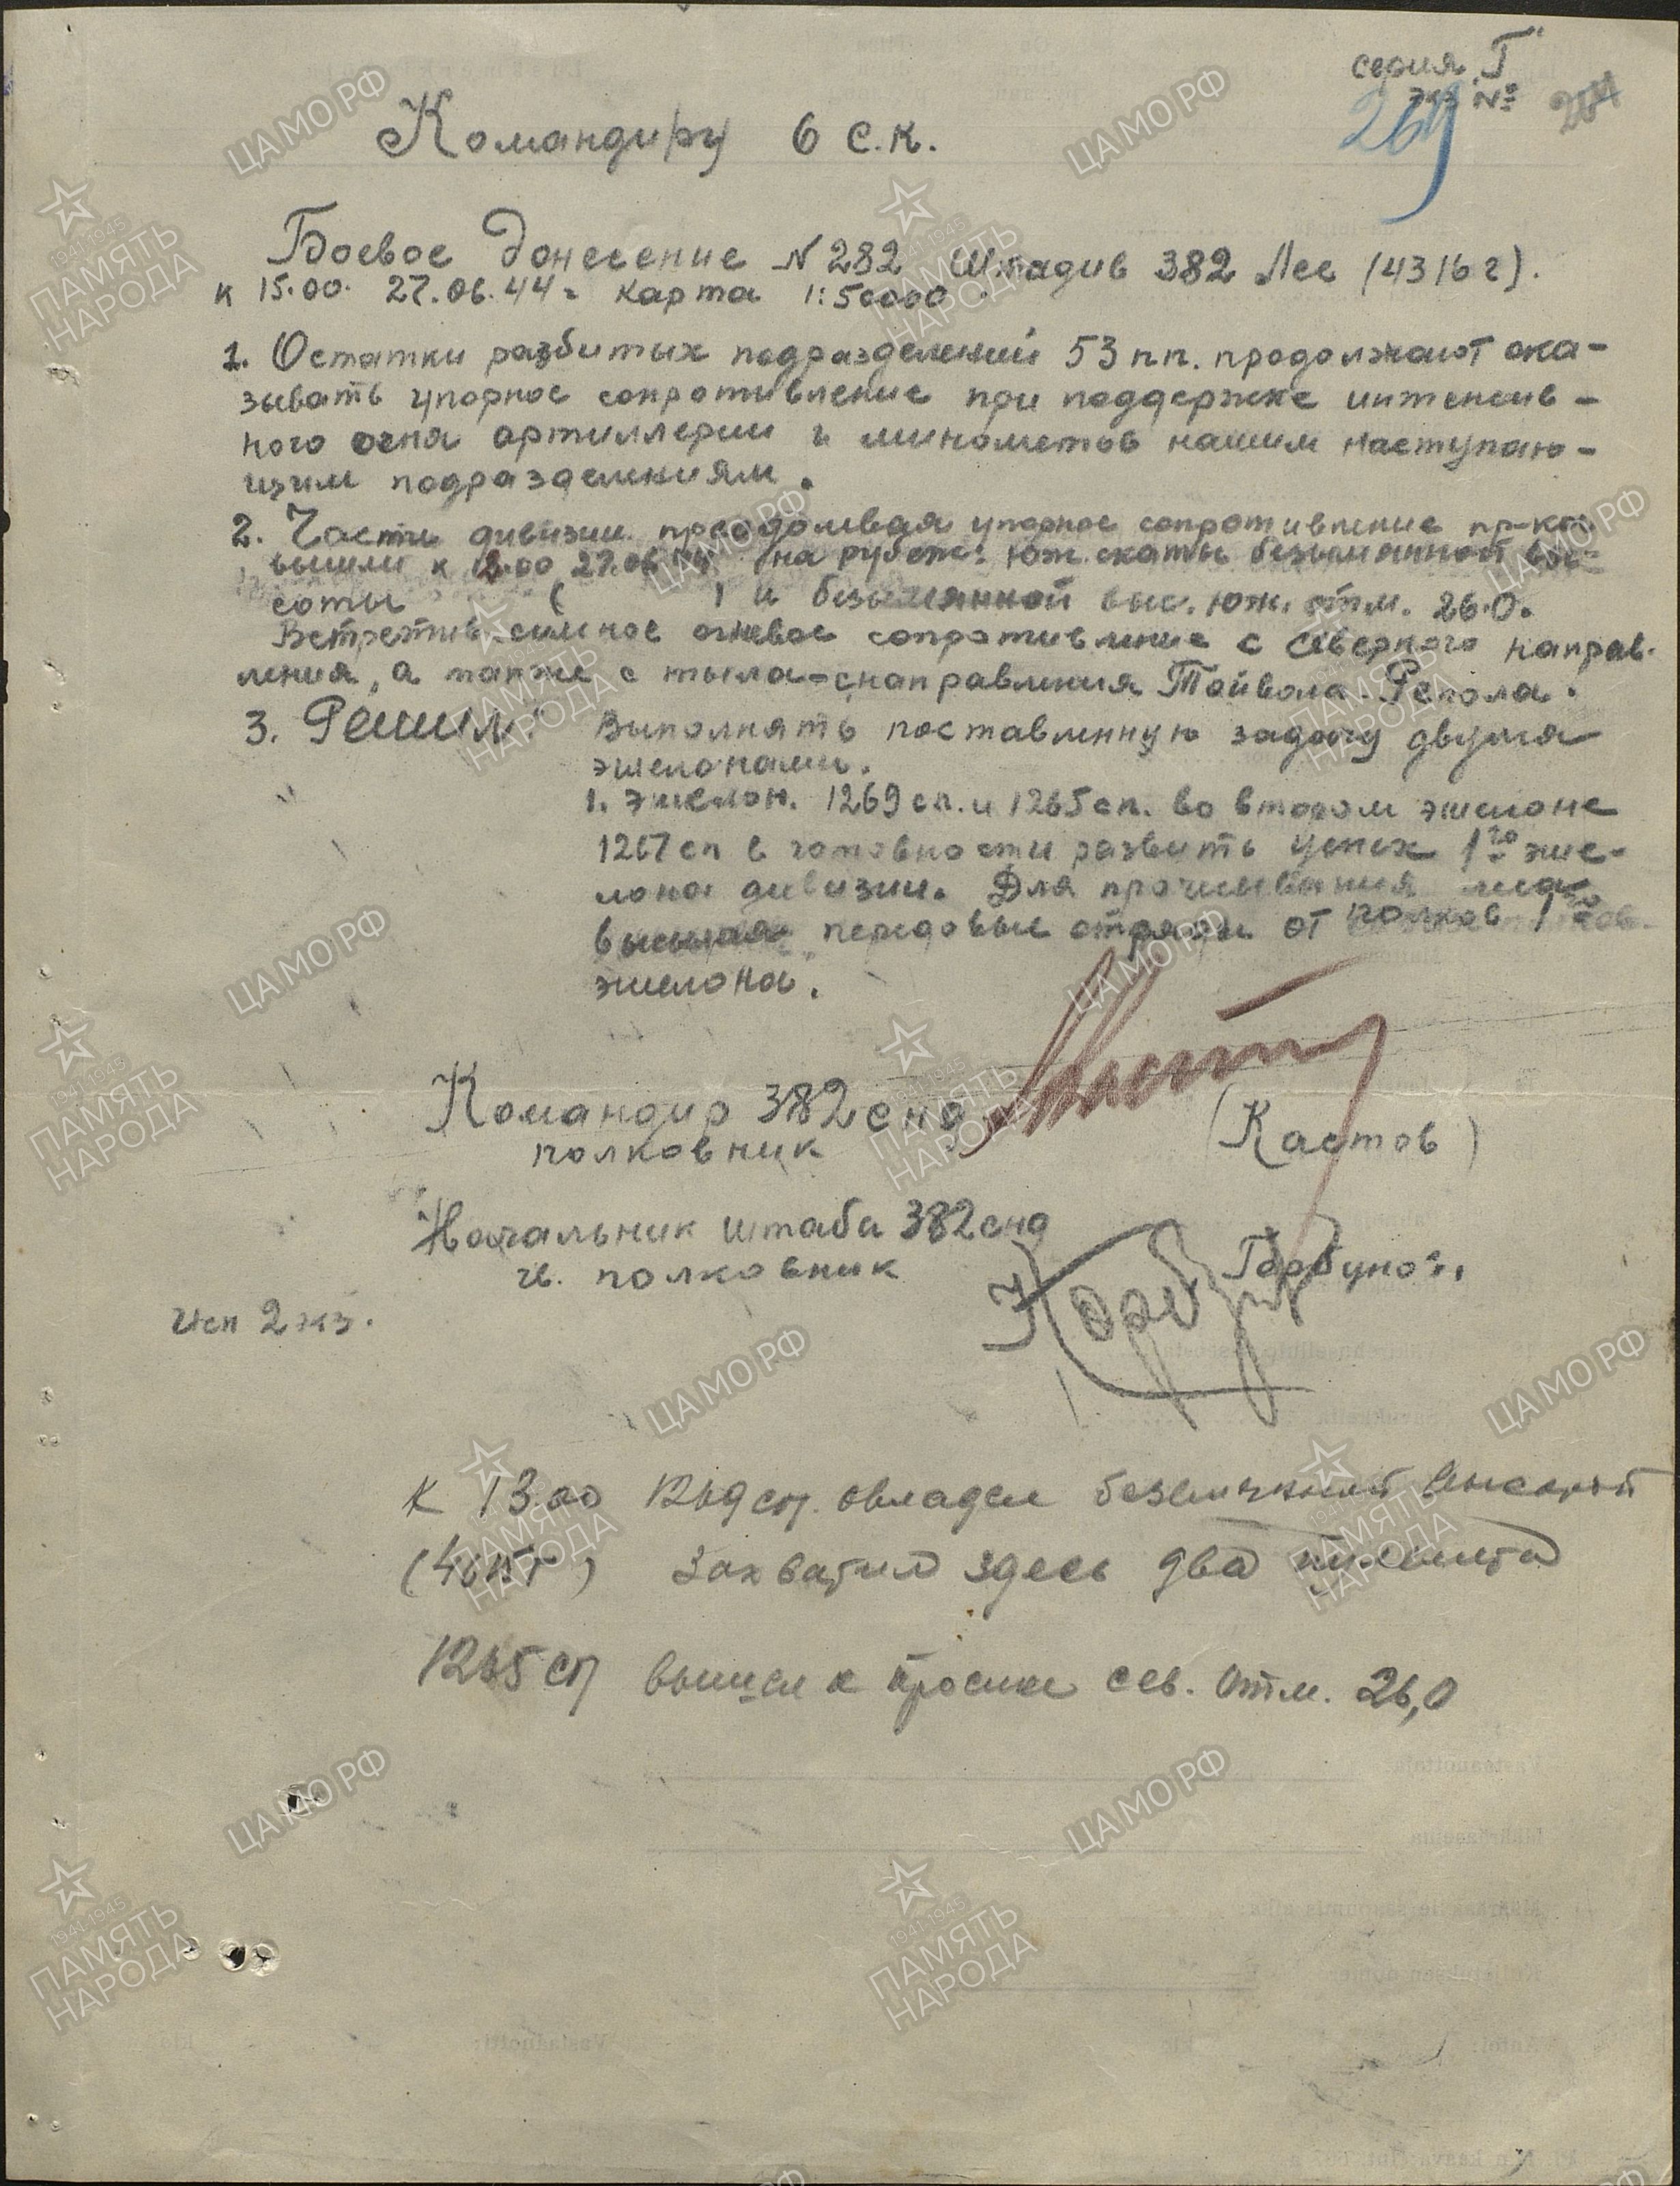 серия "Г"
экз №
269
Командиру 6 с.к.
Боевое донесение N 282 Штадив 382 Лес (4316 г).
к 15.00. 27.06.44г карта 1:50000.
1. Остатки разбитых подразделений 53 пп. продолжают ока-
зывать упорное сопротивление при поддержке интенсив-
ного огня артиллерии и минометов нашим наступаю-
щим подразделениям.
2. Части дивизии преодолевая упорное сопротивление пр-ка
вышли к 12.00 27.06.44 на рубеж: юж. скаты безымянной вы-
соты ( ) и безымянной выс. юж. отм. 26.0.
Встретив сильное огневое сопротивление с северного направ-
ления, а также с тыла-с направления Тойвола. Репола.
3. Решил: Выполнять поставленную задачу двумя
эшелонами.
1. эшелон. 1269 сп. и 1265 сп. во втором эшелоне
1267 сп в готовности развить успех 1го эше-
лона дивизии. Для прочесывания леса
высылая передовые отряды от полков 1го
эшелона.
Командир 382 спд
полковник
(Кастов)
Начальник штаба 382 спд
гв. полковник
Горбунов.
исп 2 экз.
К 13.00 1269 сп. овладел безымянной высотой
захватил здесь два пулемета
1265 сп вышел к просеке сев. отм. 26,0
ЦАМО РФ
1941-1945
ПАМЯТЬ
НАРОДА